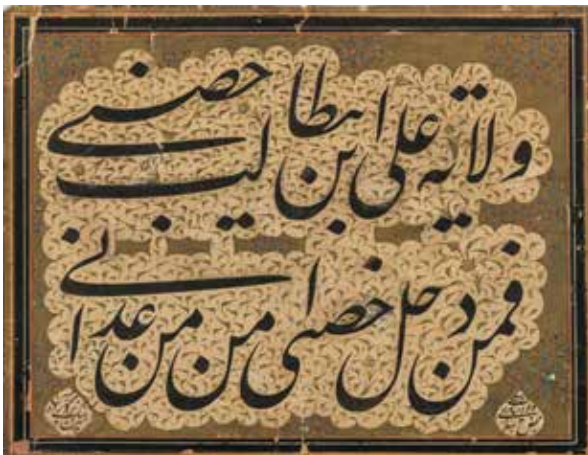 ولایة علی بن ابیطالب حصنی
فمن دخل حصنی امن من عذابی